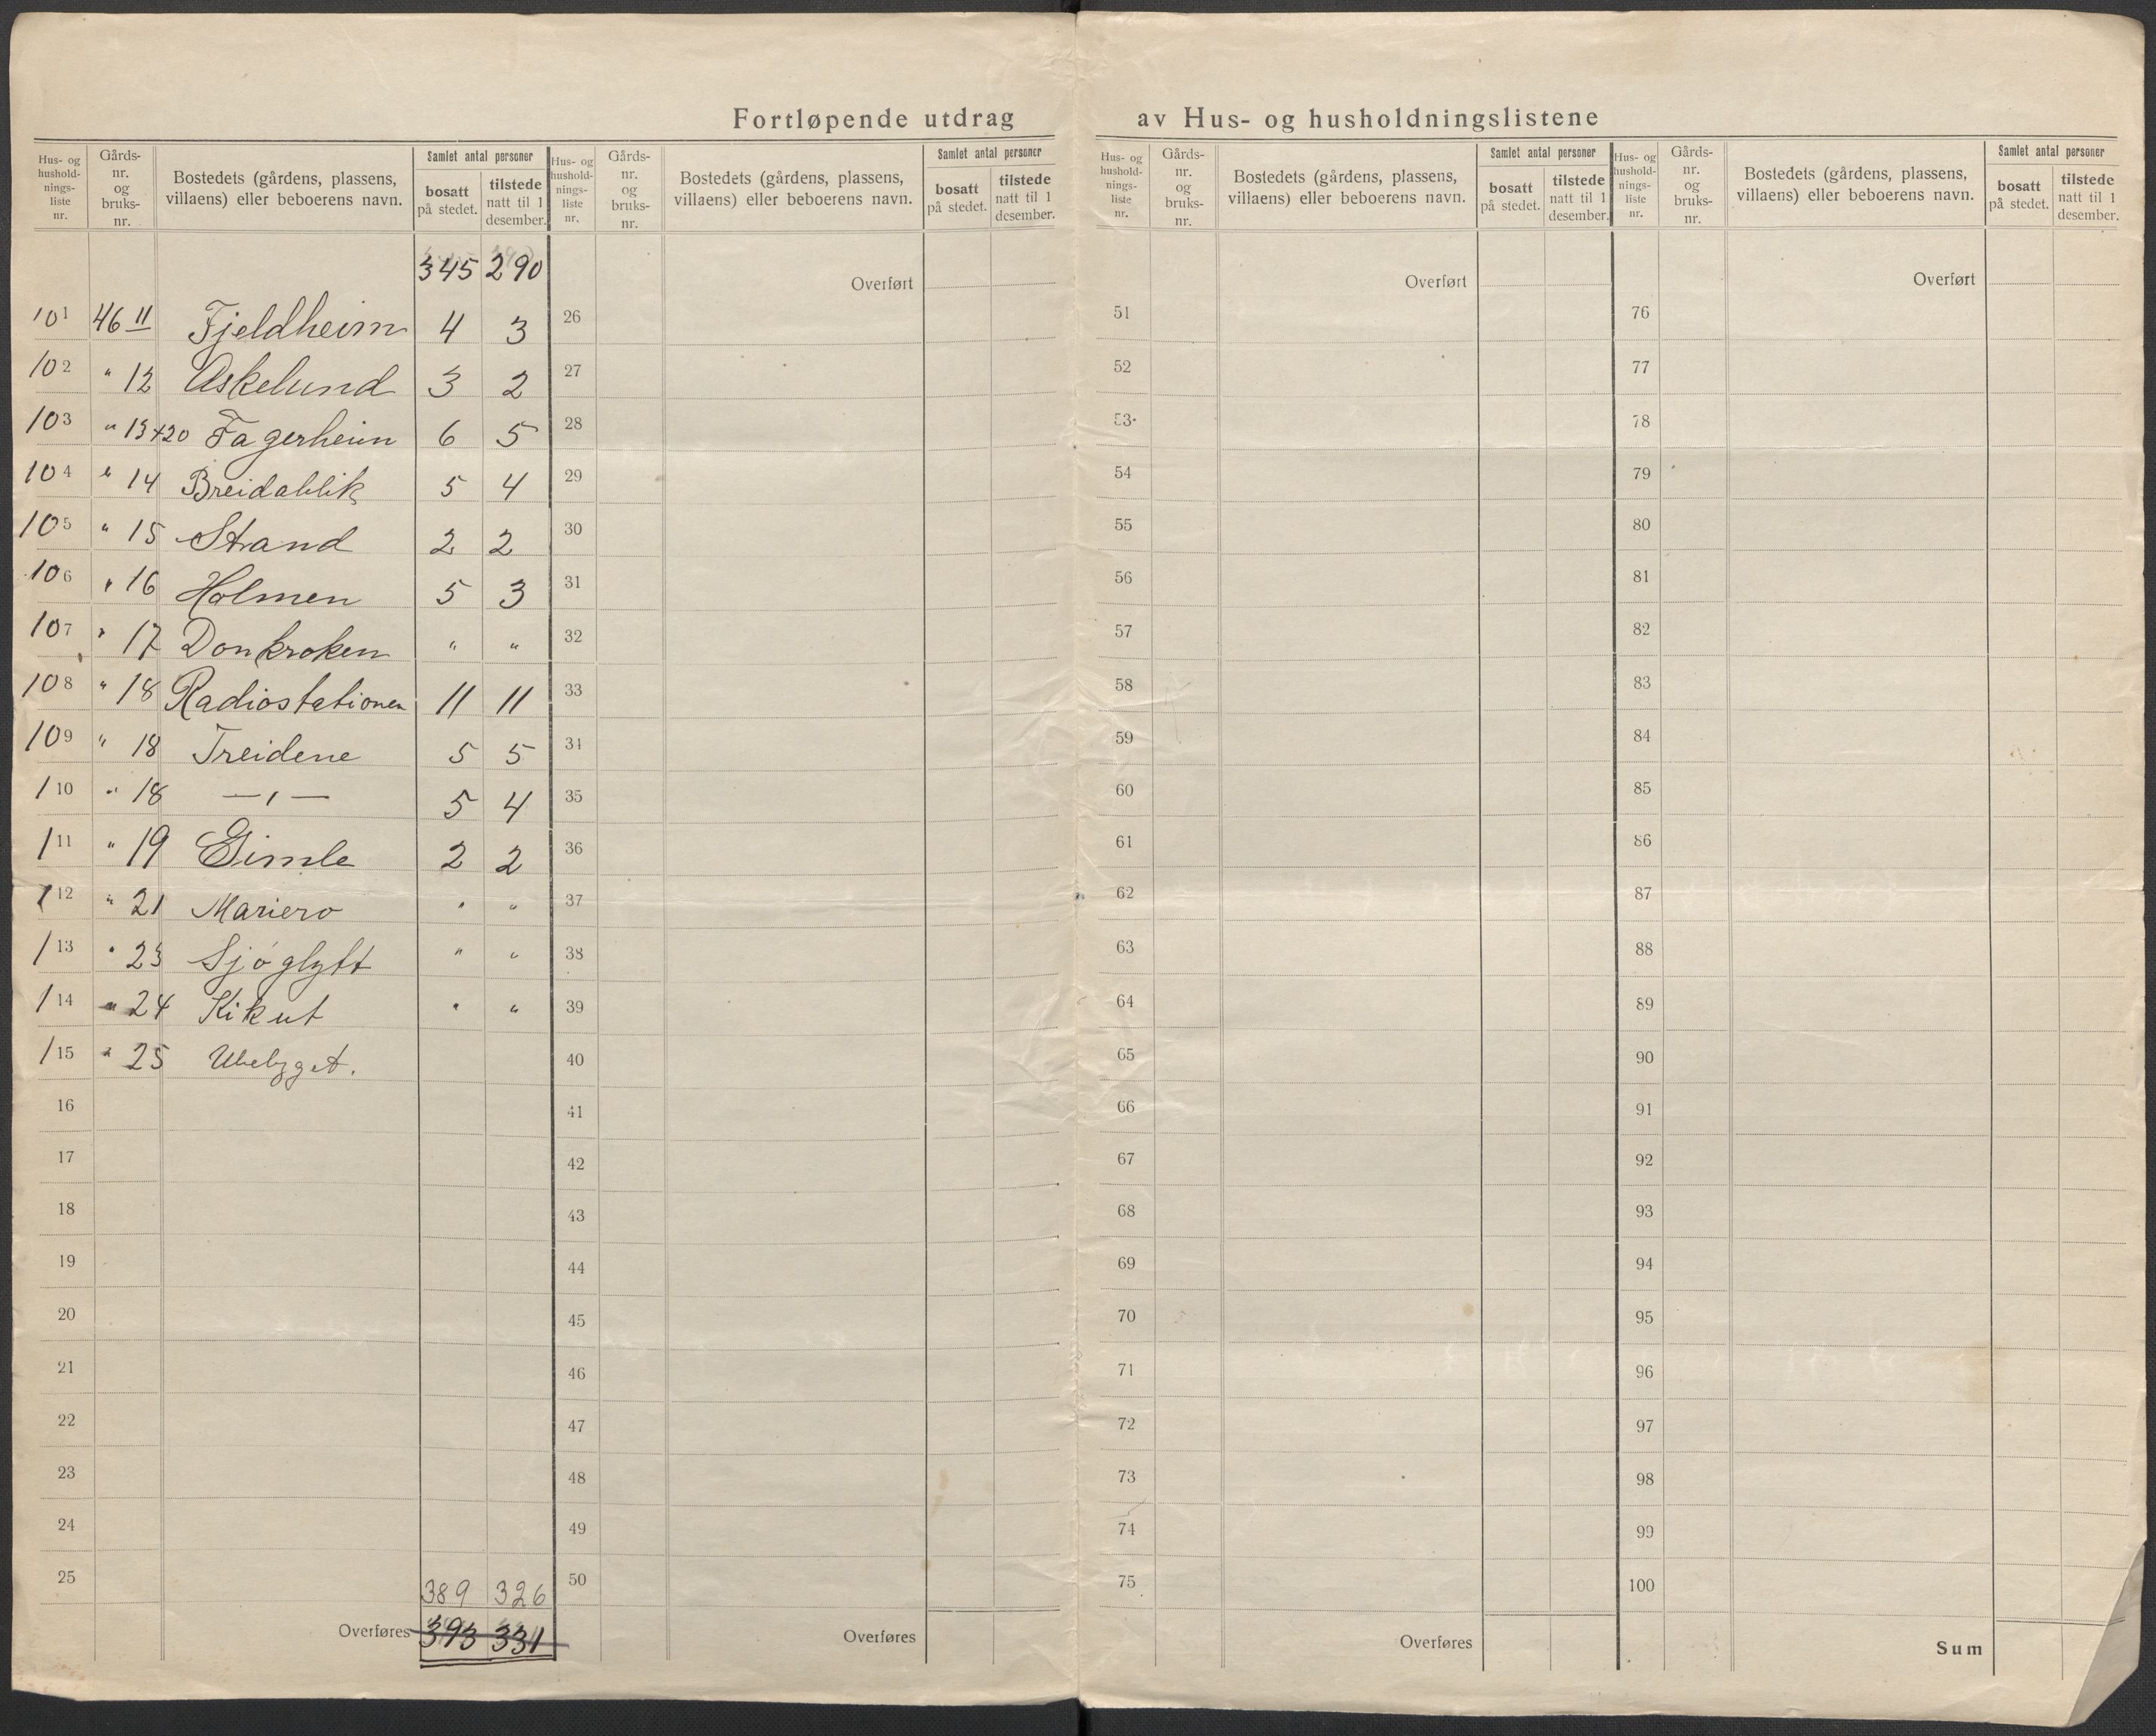 Fortløpende utdrag av Hus- og husholdningslistene
Hus- og hushold- nings- liste nr. Gårds- nr. og bruks- nr. Bostedets (gårdens, plassens, villaens) eller beboerens navn. Samlet antal personer bosatt på stedet. tilstede natt til 1 desember.
Hus- og hushold- nings- liste nr. Gårds- nr. og bruks- nr. Bostedets (gårdens, plassens, villaens) eller beboerens navn. Samlet antal personer bosatt på stedet. tilstede natt til 1 desember.
Hus- og hushold- nings- liste nr. Gårds- nr. og bruks- nr. Bostedets (gårdens, plassens, villaens) eller beboerens navn. Samlet antal personer bosatt på stedet. tilstede natt til 1 desember.
Hus- og hushold- nings- liste nr. Gårds- nr. og bruks- nr. Bostedets (gårdens, plassens, villaens) eller beboerens navn. Samlet antal personer bosatt på stedet. tilstede natt til 1 desember.
345 290 Overført Overført Overført
101 46 11 Fjeldheim 4 3 26 51 76
102 " 12 Askelund 3 2 27 52 77
103 " 13+20 Fagerheim 6 5 28 53 78
104 " 14 Breidablik 5 4 29 54 79
105 " 15 Strand 2 2 30 55 80
106 " 16 Holmen 5 3 31 56 81
107 " 17 Donkroken " " 32 57 82
108 " 18 Radiostationen 11 11 33 58 83
109 " 18 Treidene 5 5 34 59 84
110 " 18 —"— 5 4 35 60 85
111 " 19 Gimle 2 2 36 61 86
112 " 21 Mariero " " 37 62 87
113 " 23 Sjöglytt " " 38 63 88
114 " 24 Kikut " " 39 64 89
115 " 25 Ubebygget. 40 65 90
16 41 66 91
17 42 67 92
18 43 68 93
19 44 69 94
20 45 70 95
21 46 71 96
22 47 72 97
23 48 73 98
24 49 74 99
25 389 326 50 75 100
Overføres 393 331 Overføres Overføres Sum